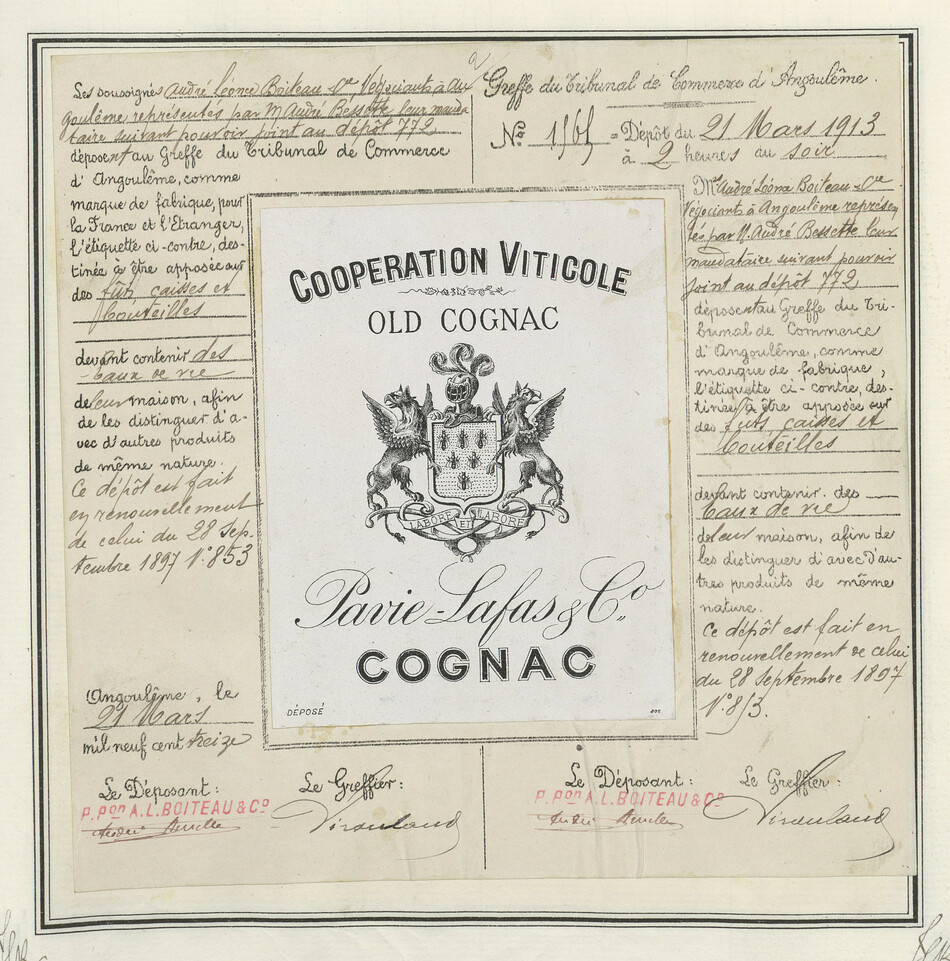 Les soussignés André Léonce Boiteau & Cie Négociants à An
goulême, représentés par M. André Bessette leur manda
taire suivant pouvoir joint au dépôt 772
déposent au Greffe du Tribunal de Commerce
d'Angoulême, comme
marque de fabrique, pour
la France et l'Etranger,
l'étiquette ci-contre, des-
tinée à être apposée sur
des fûts, caisses et
bouteilles
devant contenir des
eaux de vie
de leur maison, afin
de les distinguer d'a-
vec d'autres produits
de même nature.
Ce dépôt est fait
en renouvellement
de celui du 28 Sep-
tembre 1897 N° 853
Angoulême, le
21 Mars
mil neuf cent treize
Le Déposant:
P. PON A.L. BOITEAU & CO
Le Greffier:
COOPERATION VITICOLE
OLD COGNAC
LABORE ET LABORE
Pavie-Lafas & Co.
COGNAC
DÉPOSÉ
Greffe du Tribunal de Commerce d'Angoulême.
No 1565 = Dépôt du 21 Mars 1913
à 2 heures du soir
Mrs André Léonce Boiteau & Cie
Négociants à Angoulême représen
tés par M. André Bessette leur
mandataire suivant pouvoir
joint au dépôt 772
déposent au Greffe du Tri-
bunal de Commerce
d'Angoulême, comme
marque de fabrique,
l'étiquette ci-contre, des-
tinée à être apposée sur
des fûts, caisses et
bouteilles
devant contenir des
eaux de vie
de leur maison, afin de
les distinguer d'avec d'au-
tres produits de même
nature.
Ce dépôt est fait en
renouvellement de celui
du 28 Septembre 1897
N° 853.
Le Déposant:
P. PON A.L. BOITEAU & CO
Le Greffier: